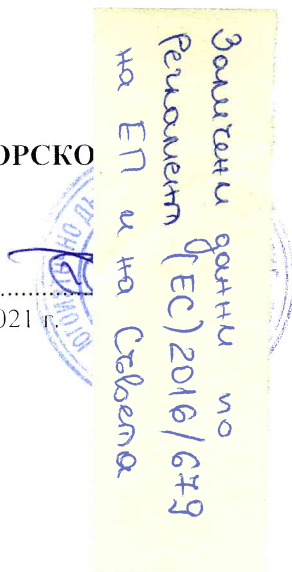 ОРСКО
021 г.
ЮГОИЗТОЧНО Д
Заличени данни по
Регламент (ЕС) 2016/679
на ЕП и на Съвета